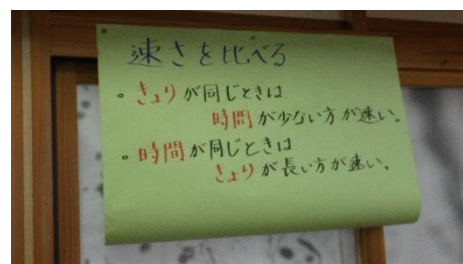 速さを比べる
。きょりが同じときは
時間が少ない方が速い。
。時間が同じときは
きょりが長い方が速い。